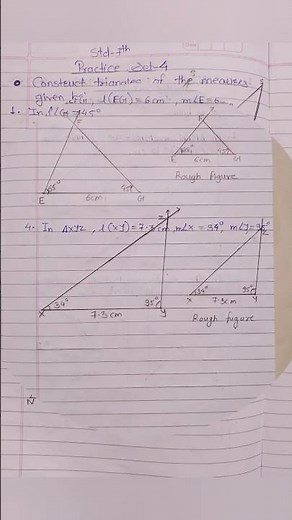 Std-7th
Practice Set-4
Construct triangles of the measures
given
l(EG) = 6cm, m∠E = 6
1. In
= 45°
F
F
65°
45°
E
6cm
G
65°
45°
E
6cm
G
Rough figure
4. In ΔXYZ, l(XY) = 7.3 cm m∠X = 34° m∠Y = 95°
Z
Z
34°
95°
X
7.3 cm
Y
34°
95°
X
7.3cm
Y
Rough figure